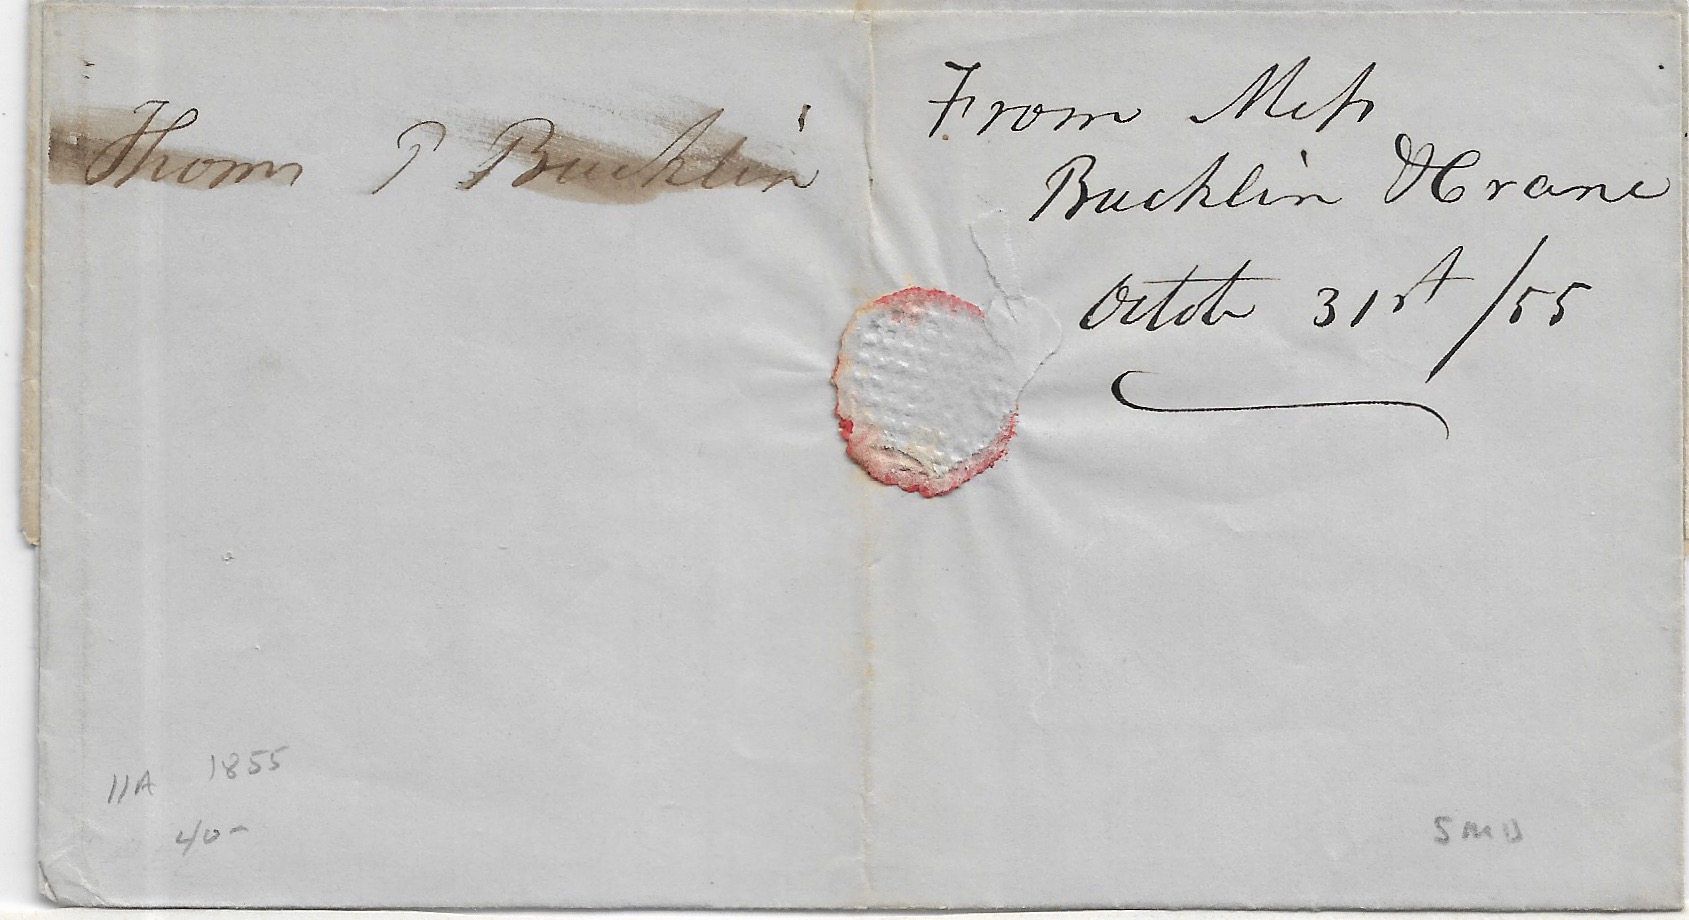 Thom P Bucklin
From Mess
Bucklin & Crane
Octob 31st /55
11A 1855
40-